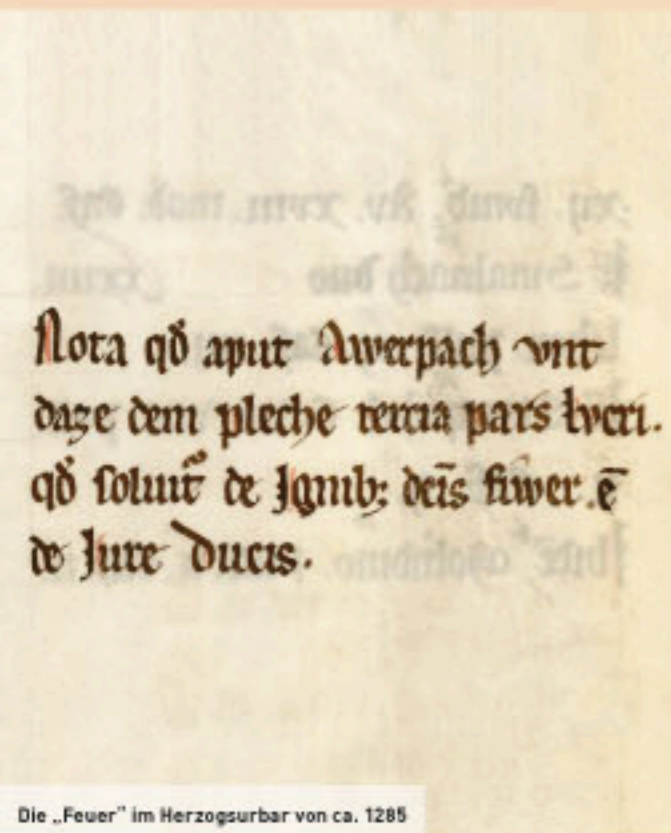 Nota qđ aput Awerpach vnt
daze dem pleche tercia pars lvcri.
qđ soluit᷑ de Jgnib; dc̄is fiwer. ē
de Jure ducis.
Die „Feuer" im Herzogsurbar von ca. 1285